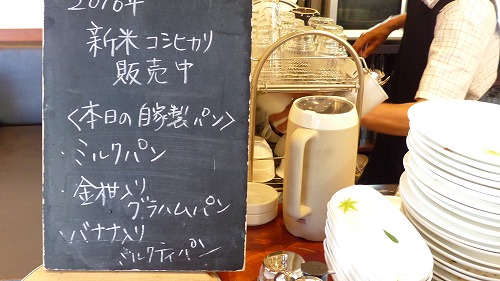 2016年
新米コシヒカリ
販売中
<本日の自家製パン>
・ミルクパン
・金柑入り
グラハムパン
・バナナ入り
ミルクティパン